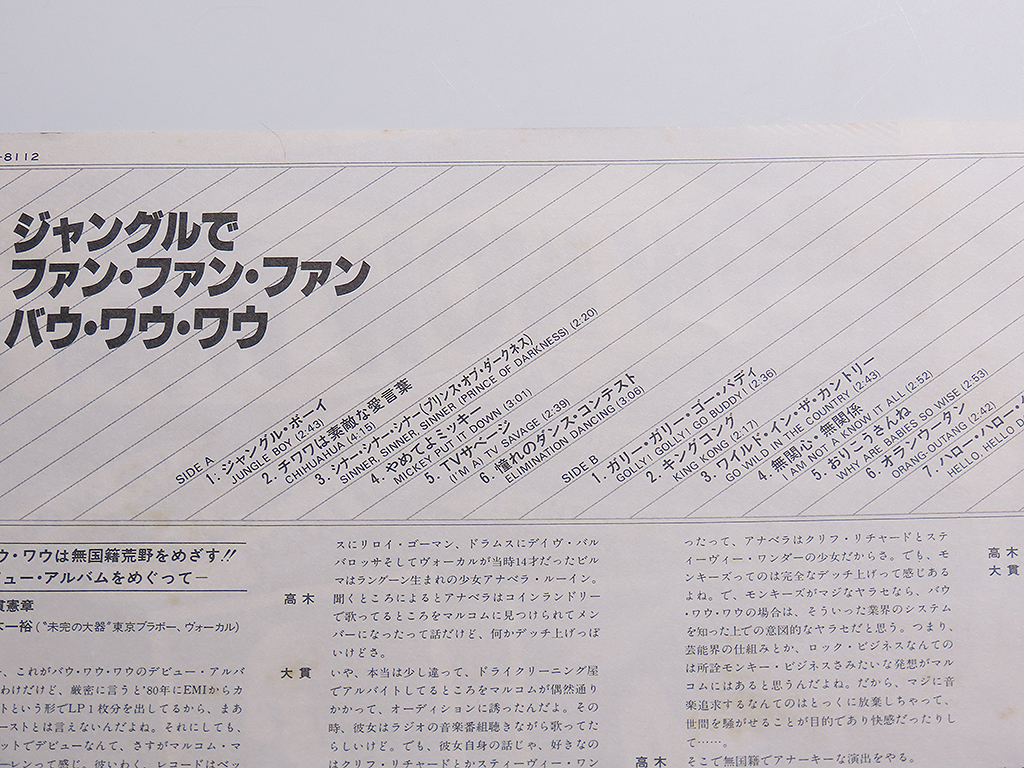 -8112
ジャングルで
ファン・ファン・ファン
バウ・ワウ・ワウ
SIDE A
1. ジャングル・ボーイ
JUNGLE BOY (2:43)
2. チワワは素敵な愛言葉
CHIHUAHUA (4:15)
3. シナー・シナー・シナー(プリンス・オブ・ダークネス)
SINNER, SINNER, SINNER (PRINCE OF DARKNESS) (2:20)
4. やめてよミッキー
MICKEY PUT IT DOWN (3:01)
5. TVサベージ
(I'M A) TV SAVAGE (2:39)
6. 憧れのダンス・コンテスト
ELIMINATION DANCING (3:06)
SIDE B
1. ガリー・ガリー・ゴー・バディ
GOLLY! GOLLY! GO BUDDY! (2:36)
2. キングコング
KING KONG (2:17)
3. ワイルド・イン・ザ・カントリー
GO WILD IN THE COUNTRY (2:43)
4. 無関心・無関係
I AM NOT A KNOW IT ALL (2:52)
5. おりこうさんね
WHY ARE BABIES SO WISE (2:53)
6. オランウータン
ORANG-OUTANG (2:42)
7. ハロー・ハロー・
HELLO, HELLO D
ウ・ワウは無国籍荒野をめざす!!
ビュー・アルバムをめぐって―
貫憲章
木一裕(〝未完の大器〟東京ブラボー、ヴォーカル)
、これがバウ・ワウ・ワウのデビュー・アルバ
わけだけど、厳密に言うと'80年にEMIからカ
トという形でLP1枚分を出してるから、まあ
ーストとは言えないんだよね。それにしても、
ットでデビューなんて、さすがマルコム・マ
ーレンって感じ。彼いわく、レコードはペッ
スにリロイ・ゴーマン、ドラムスにデイヴ・バル
バロッサそしてヴォーカルが当時14才だったビル
マはラングーン生まれの少女アナベラ・ルーイン。
高木 聞くところによるとアナベラはコインランドリー
で歌ってるところをマルコムに見つけられてメン
バーになったって話だけど、何かデッチ上げっぽ
いけどさ。
大貫 いや、本当は少し違って、ドライクリーニング屋
でアルバイトしてるところをマルコムが偶然通り
かかって、オーディションに誘ったんだよ。その
時、彼女はラジオの音楽番組聴きながら歌ってた
らしいけど。でも、彼女自身の話じゃ、好きなの
はクリフ・リチャードとかスティーヴィー・ワン
ったって、アナベラはクリフ・リチャードとステ
ィーヴィー・ワンダーの少女だからさ。でも、モ
ンキーズってのは完全なデッチ上げって感じある
よね。で、モンキーズがマジなヤラセなら、バウ
・ワウ・ワウの場合は、そういった業界のシステム
を知った上での意図的なヤラセだと思う。つまり、
芸能界の仕組みとか、ロック・ビジネスなんての
は所詮モンキー・ビジネスさみたいな発想がマル
コムにはあると思うんだよね。だから、マジに音
楽追求するなんてのはとっくに放棄しちゃって、
世間を騒がせることが目的であり快感だったりし
て……。
高木 そこで無国籍でアナーキーな演出をやる。
高木
大貫